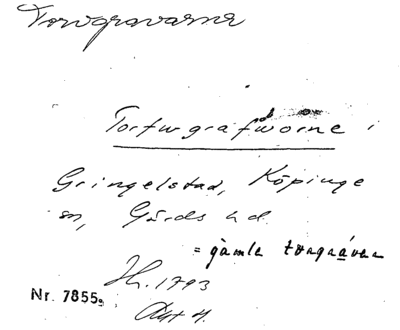 Torvgravarna
Torfwgrafwörne i
Gringelstad, Köpinge
sn, Gärds hd.
= gamla torvgraven
H. 1793
Akt 4.
Nr. 7855